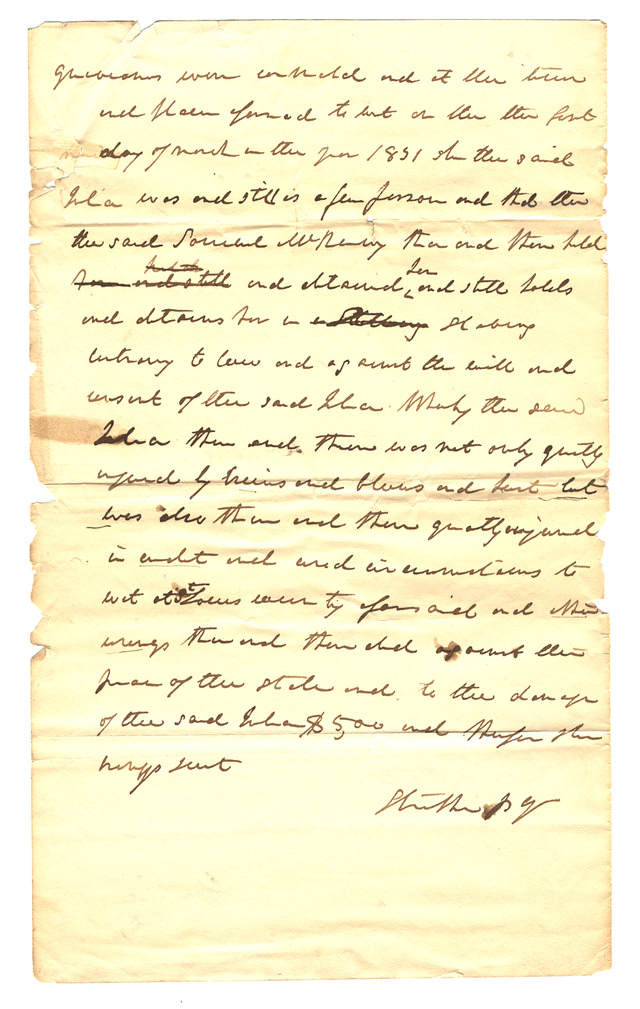 grievances were committed and at the time
and place aforesaid to wit on the the first
day of march in the year 1831 she the said
Julia was and still is a free person and that the
the said Samuel McKenney then and there held
held &
her and still and detained her and still holds
and detains her in a Slavery
contrary to law and against the will and
consent of the said Julia Whereby the said
Julia then and there was not only greatly
injured by bruises and blows and hurt but
was also then and there greatly injured
in credit and circumstances to
wit at St Louis County aforesaid and other
wrongs then and there did against the
peace of the state and to the damage
of the said Julia $500 and therefore she
brings suit
Strother pq